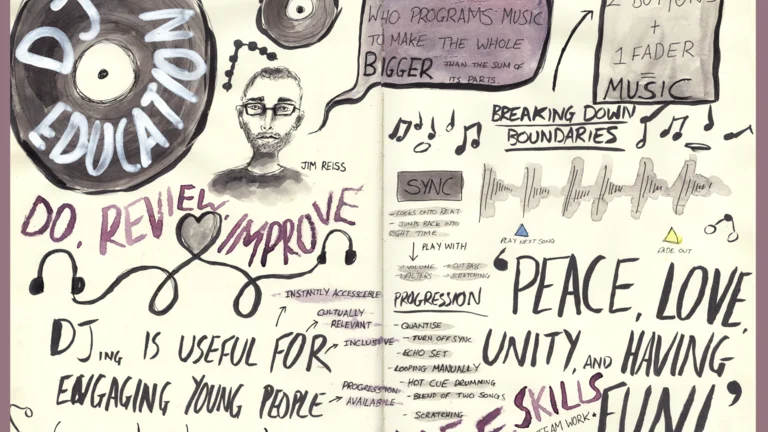 DJ
EDUCATION
JIM REISS
WHO PROGRAMS MUSIC
TO MAKE THE WHOLE
BIGGER THAN THE SUM OF
ITS PARTS.
2 BUTTONS
+
1 FADER
=
MUSIC
BREAKING DOWN
BOUNDARIES
DO, REVIEW,
IMPROVE
DJing IS USEFUL FOR
ENGAGING YOUNG PEOPLE
- INSTANTLY ACCESSIBLE
CULTURALLY
- RELEVANT
INCLUSIVE
PROGRESSION
AVAILABLE
SYNC
- LOCKS ONTO BEAT
- JUMPS BACK INTO
RIGHT TIME
PLAY WITH
- VOLUME - CUT BASS
- FILTERS - SCRATCHING
PROGRESSION
- QUANTISE
- TURN OFF SYNC
- ECHO SET
- LOOPING MANUALLY
- HOT CUE DRUMMING
- BLEND OF TWO SONGS
- SCRATCHING
PLAY NEXT SONG
FADE OUT
'PEACE, LOVE,
UNITY, AND HAVING
FUN!'
SKILLS
TEAM WORK *